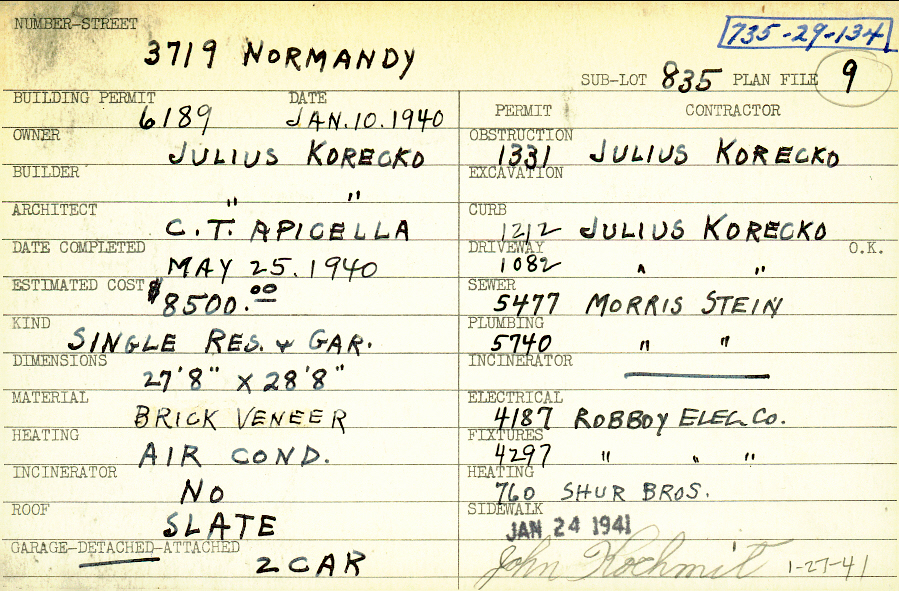 NUMBER-STREET
735-29-134
3719 NORMANDY
SUB-LOT 835 PLAN FILE 9
BUILDING PERMIT DATE
6189 JAN.10.1940
OWNER
JULIUS KORECKO
BUILDER
" "
ARCHITECT
C.T. APICELLA
DATE COMPLETED
MAY 25.1940
ESTIMATED COST $
8500.00
KIND
SINGLE RES. & GAR.
DIMENSIONS
27'8" X 28'8"
MATERIAL
BRICK VENEER
HEATING
AIR COND.
INCINERATOR
NO
ROOF
SLATE
GARAGE-DETACHED-ATTACHED
2 CAR
PERMIT CONTRACTOR
OBSTRUCTION
1331 JULIUS KORECKO
EXCAVATION
CURB
1212 JULIUS KORECKO
DRIVEWAY O.K.
1082 " "
SEWER
5477 MORRIS STEIN
PLUMBING
5740 " "
INCINERATOR
ELECTRICAL
4187 ROBBOY ELEC. CO.
FIXTURES
4297 " " "
HEATING
760 SHUR BROS.
SIDEWALK
JAN 24 1941
John 1-27-41